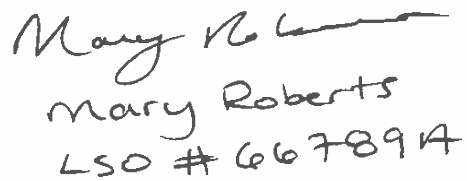 Mary Roberts
Mary Roberts
LSO # 66789A